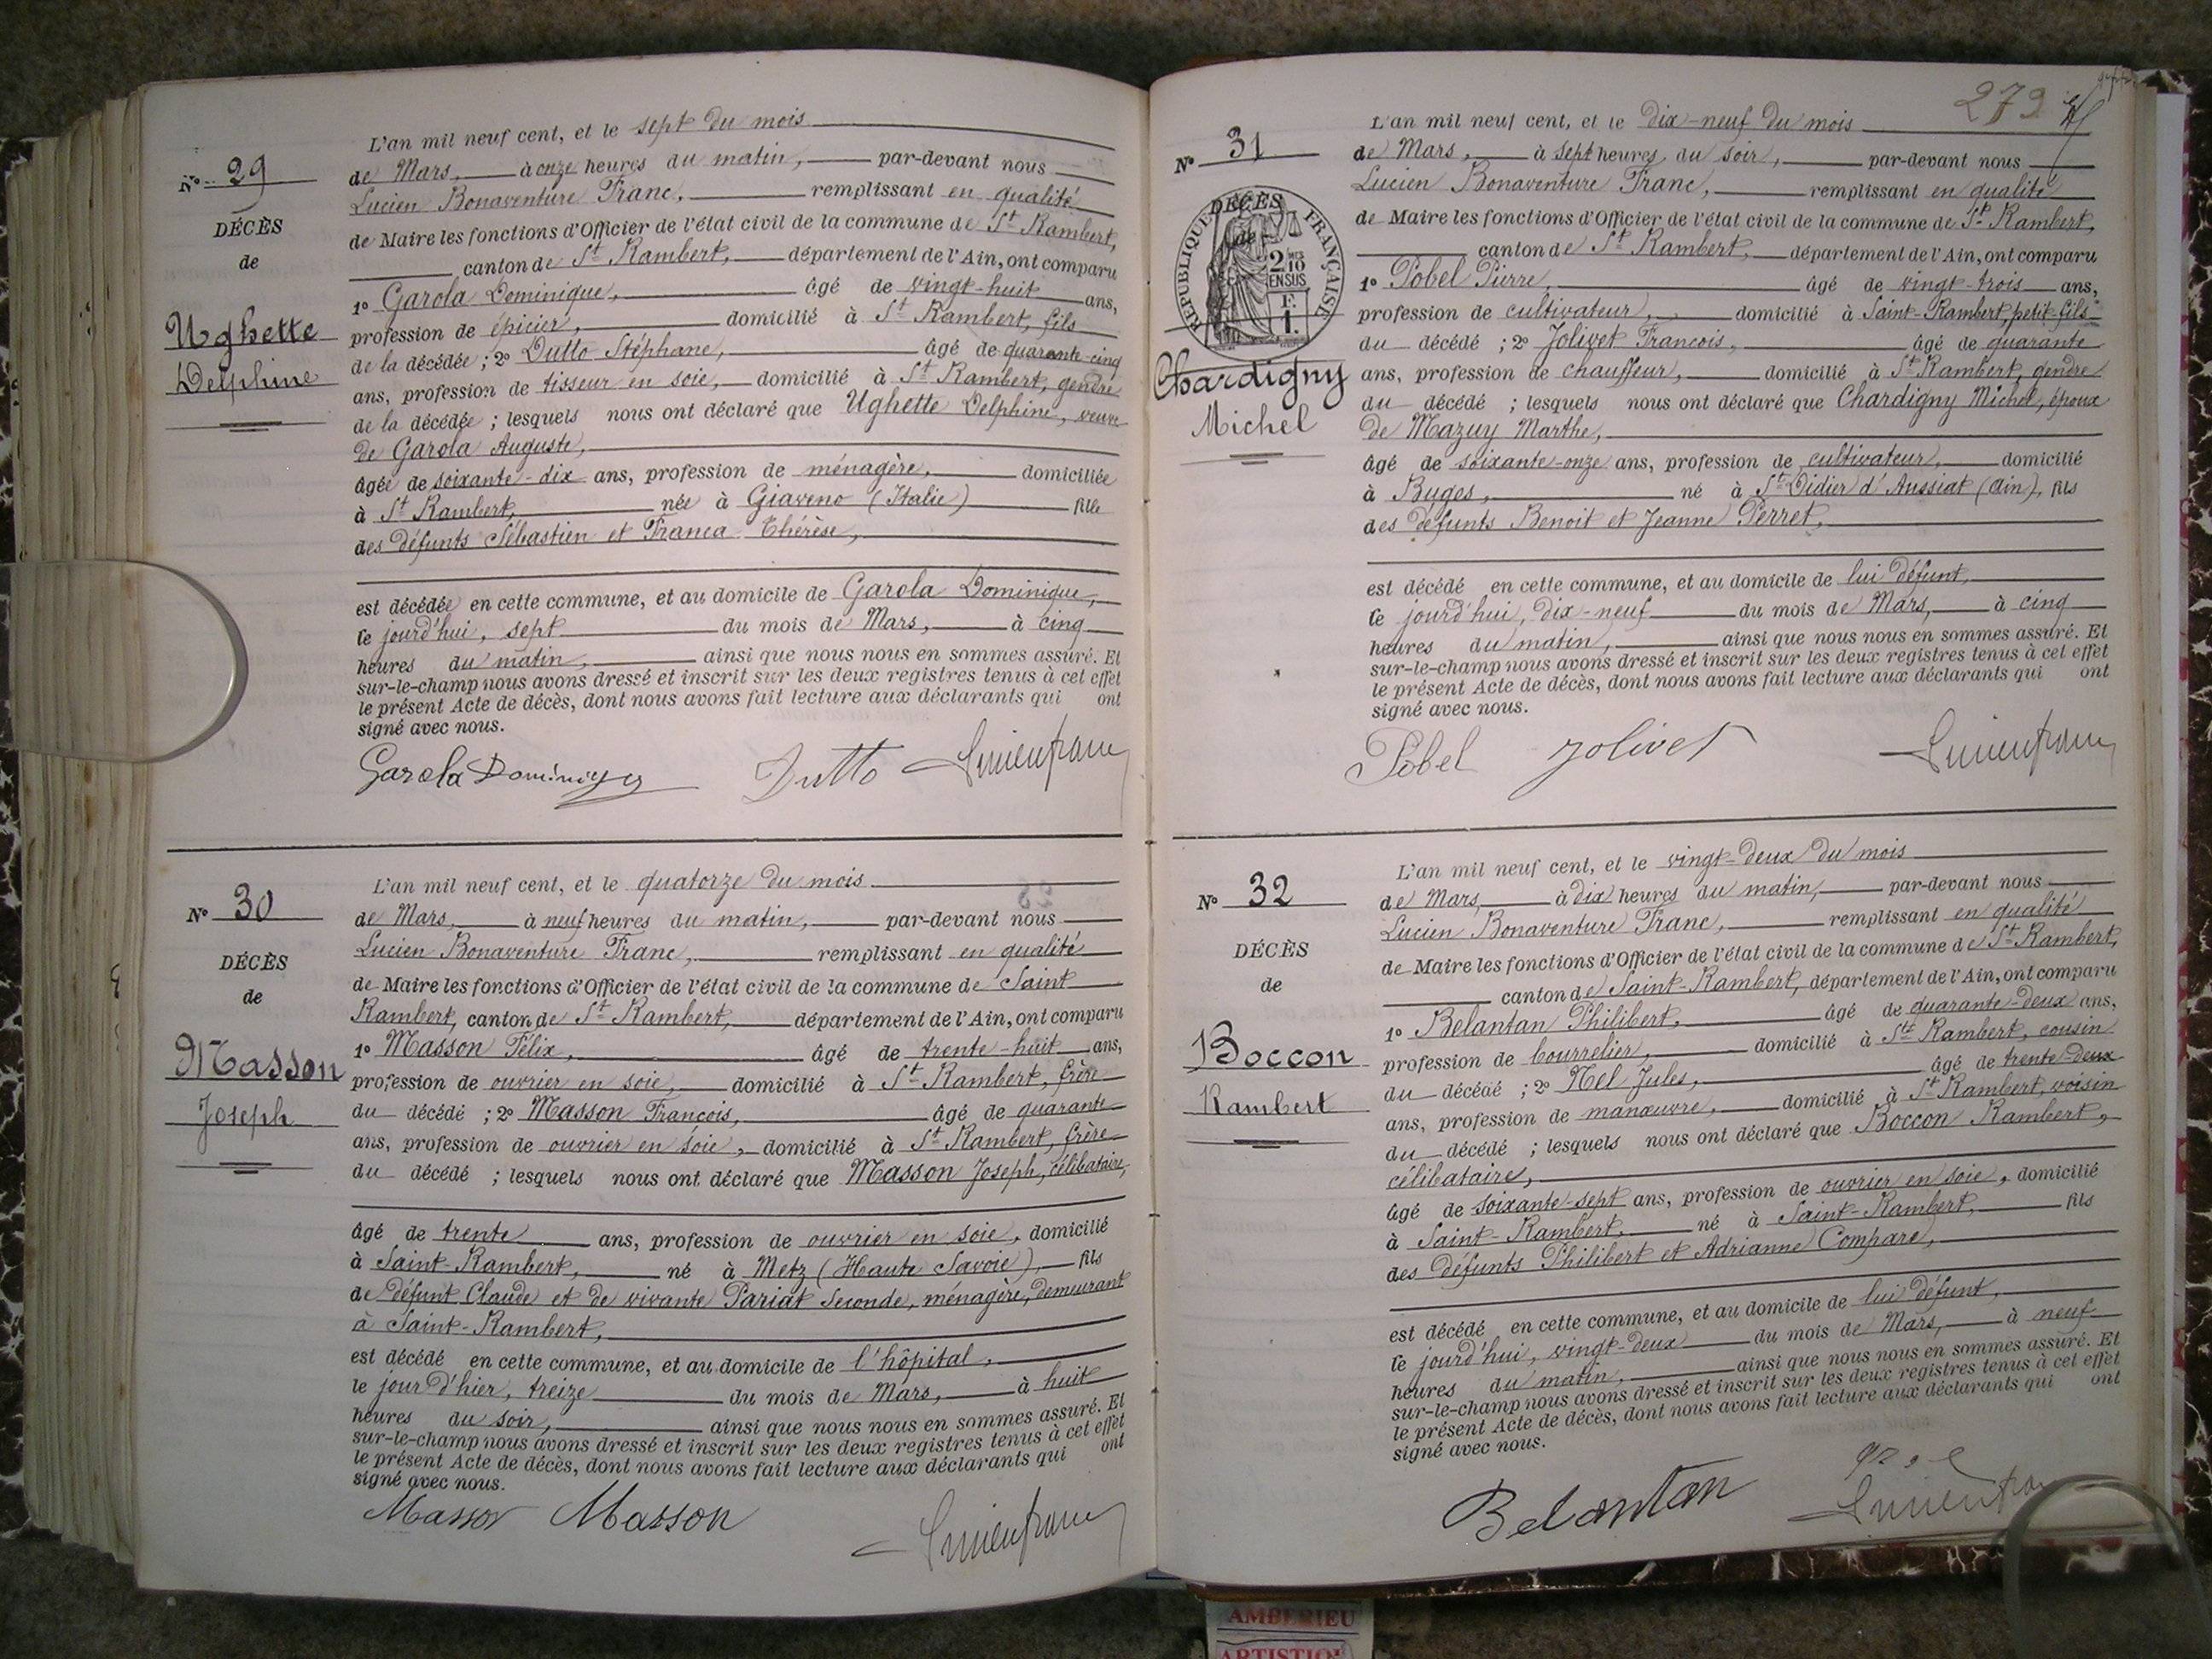 N° 29
DÉCÈS
de
Ughette
Delphine
L'an mil neuf cent, et le sept du mois
de Mars, à onze heures du matin, par-devant nous
Lucien Bonaventure Franc, remplissant en qualité
de Maire les fonctions d'Officier de l'état civil de la commune de St Rambert,
canton de St Rambert, département de l'Ain, ont comparu
1° Garola Dominique, âgé de vingt-huit ans,
profession de épicier, domicilié à St Rambert, fils
de la décédée ; 2° Dutto Stéphane, âgé de quarante-cinq
ans, profession de tisseur en soie, domicilié à St Rambert, gendre
de la décédée ; lesquels nous ont déclaré que Ughette Delphine, veuve
de Garola Auguste,
âgée de soixante-dix ans, profession de ménagère, domiciliée
à St Rambert, née à Giaveno (Italie) fille
des défunts Sébastien et Franca Thérèse,
est décédée en cette commune, et au domicile de Garola Dominique,
le jourd'hui, sept du mois de Mars, à cinq
heures du matin, ainsi que nous nous en sommes assuré. Et
sur-le-champ nous avons dressé et inscrit sur les deux registres tenus à cet effet
le présent Acte de décès, dont nous avons fait lecture aux déclarants qui ont
signé avec nous.
Garola Dutto Lucien franc
N° 30
DÉCÈS
de
Masson
Joseph
L'an mil neuf cent, et le quatorze du mois
de Mars, à neuf heures du matin, par-devant nous
Lucien Bonaventure Franc, remplissant en qualité
de Maire les fonctions d'Officier de l'état civil de la commune de Saint
Rambert, canton de St Rambert, département de l'Ain, ont comparu
1° Masson Félix, âgé de trente-huit ans,
profession de ouvrier en soie, domicilié à St Rambert, frère
du décédé ; 2° Masson François, âgé de quarante
ans, profession de ouvrier en soie, domicilié à St Rambert, frère
du décédé ; lesquels nous ont déclaré que Masson Joseph, célibataire,
âgé de trente ans, profession de ouvrier en soie, domicilié
à Saint-Rambert, né à Metz (Haute Savoie), fils
de défunt Claude et de vivante Pariat Seconde, ménagère, demeurant
à Saint-Rambert,
est décédé en cette commune, et au domicile de l'hôpital,
le jour d'hier, treize du mois de Mars, à huit
heures du soir, ainsi que nous nous en sommes assuré. Et
sur-le-champ nous avons dressé et inscrit sur les deux registres tenus à cet effet
le présent Acte de décès, dont nous avons fait lecture aux déclarants qui ont
signé avec nous.
Masson Masson Lucien franc
279
N° 31
DÉCÈS
de
RÉPUBLIQUE FRANÇAISE
2/10 EN SUS
1 F.
Chardigny
Michel
L'an mil neuf cent, et le dix-neuf du mois
de Mars, à sept heures du soir, par-devant nous
Lucien Bonaventure Franc, remplissant en qualité
de Maire les fonctions d'Officier de l'état civil de la commune de St Rambert,
canton de St Rambert, département de l'Ain, ont comparu
1° Pobel Pierre, âgé de vingt-trois ans,
profession de cultivateur, domicilié à Saint-Rambert, petit-fils
du décédé ; 2° Jolivet François, âgé de quarante
ans, profession de chauffeur, domicilié à St Rambert, gendre
du décédé ; lesquels nous ont déclaré que Chardigny Michel, époux
de Mazuy Marthe,
âgé de soixante-onze ans, profession de cultivateur, domicilié
à Buges, né à St Didier d'Aussiat (Ain), fils
des défunts Benoit et Jeanne Perret,
est décédé en cette commune, et au domicile de lui défunt,
le jourd'hui, dix-neuf du mois de Mars, à cinq
heures du matin, ainsi que nous nous en sommes assuré. Et
sur-le-champ nous avons dressé et inscrit sur les deux registres tenus à cet effet
le présent Acte de décès, dont nous avons fait lecture aux déclarants qui ont
signé avec nous.
Pobel Jolivet Lucien franc
N° 32
DÉCÈS
de
Boccon
Rambert
L'an mil neuf cent, et le vingt-deux du mois
de Mars, à dix heures du matin, par-devant nous
Lucien Bonaventure Franc, remplissant en qualité
de Maire les fonctions d'Officier de l'état civil de la commune de St Rambert,
canton de Saint-Rambert, département de l'Ain, ont comparu
1° Belantan Philibert, âgé de quarante-deux ans,
profession de bourrelier, domicilié à St Rambert, cousin
du décédé ; 2° Nel Jules, âgé de trente-deux
ans, profession de manœuvre, domicilié à St Rambert, voisin
du décédé ; lesquels nous ont déclaré que Boccon Rambert,
célibataire,
âgé de soixante-sept ans, profession de ouvrier en soie, domicilié
à Saint-Rambert, né à Saint-Rambert, fils
des défunts Philibert et Adrianne Compare,
est décédé en cette commune, et au domicile de lui défunt,
le jourd'hui, vingt-deux du mois de Mars, à neuf
heures du matin, ainsi que nous nous en sommes assuré. Et
sur-le-champ nous avons dressé et inscrit sur les deux registres tenus à cet effet
le présent Acte de décès, dont nous avons fait lecture aux déclarants qui ont
signé avec nous.
Belantan Lucien franc
AMBERIEU